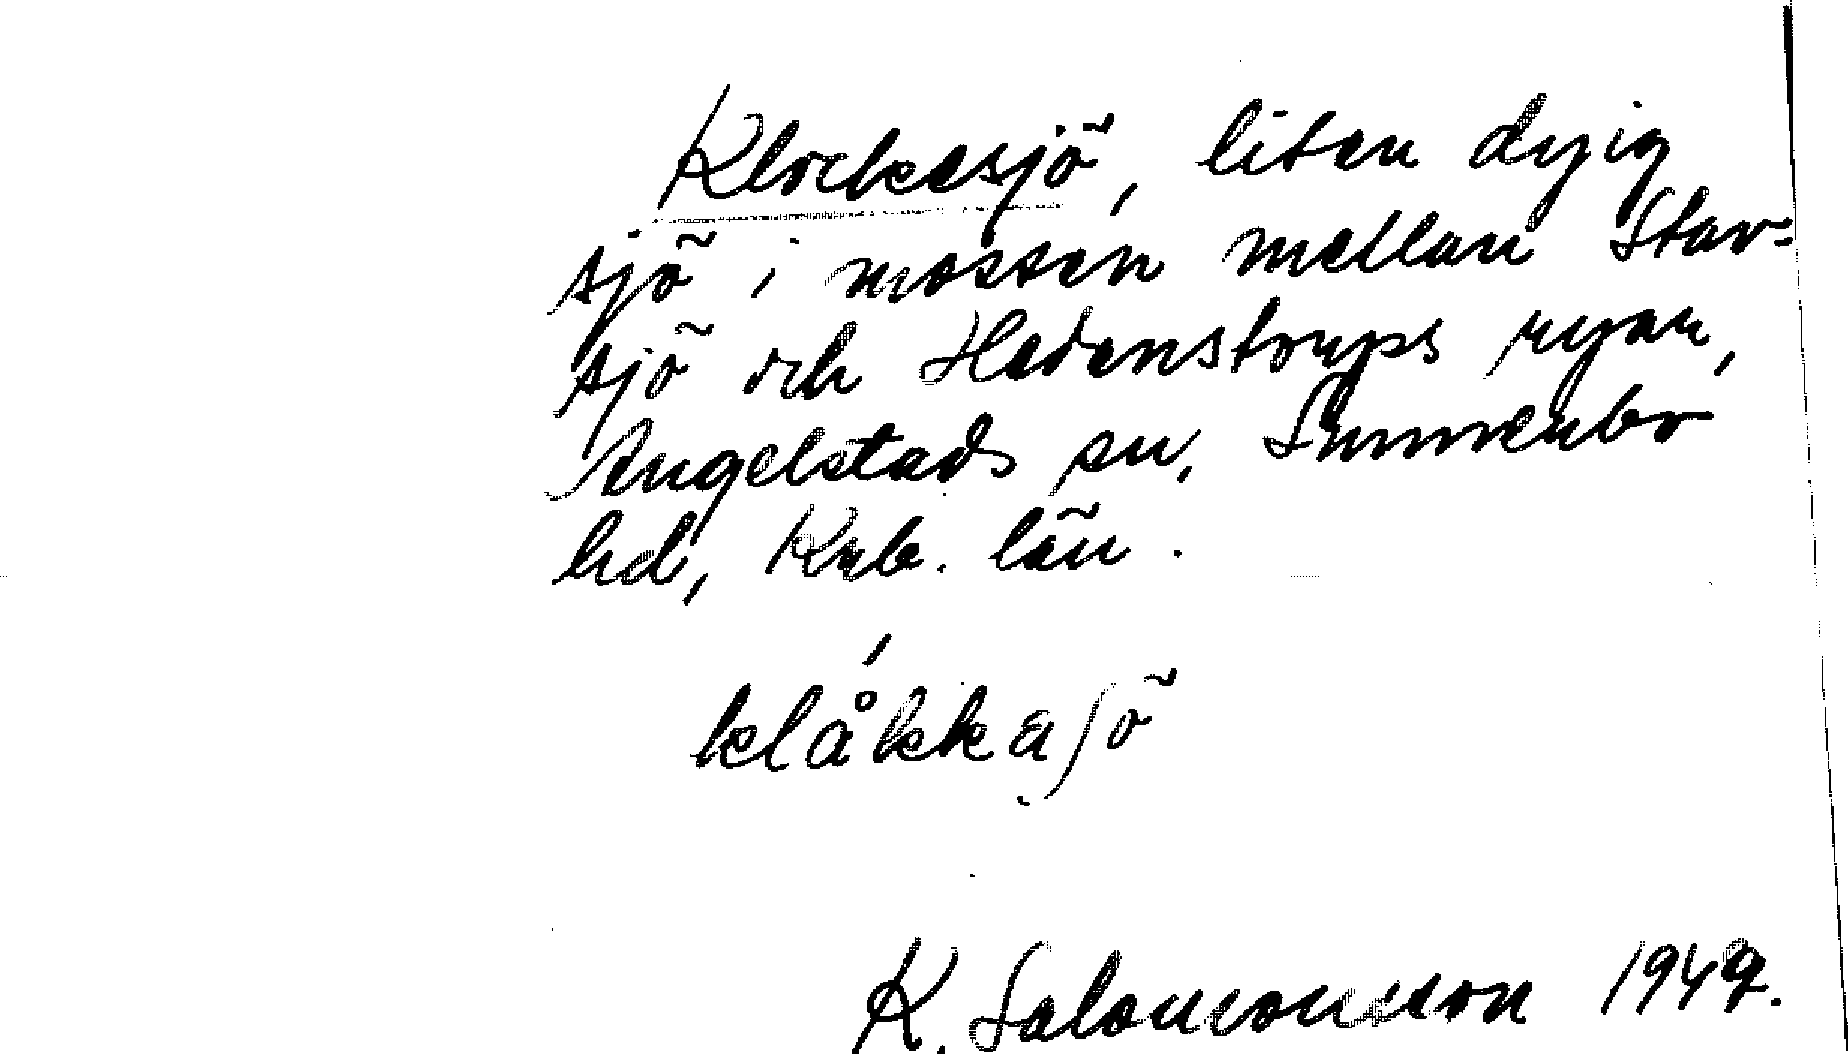 Klockasjö, liten dyig
sjö i mossen mellan Stav-
sjö och Hedenstorps ryar,
Angelstads sn, Sunnerbo
hd, Krb. län.
klåkkaʃö
K. Salomonsson 1949.